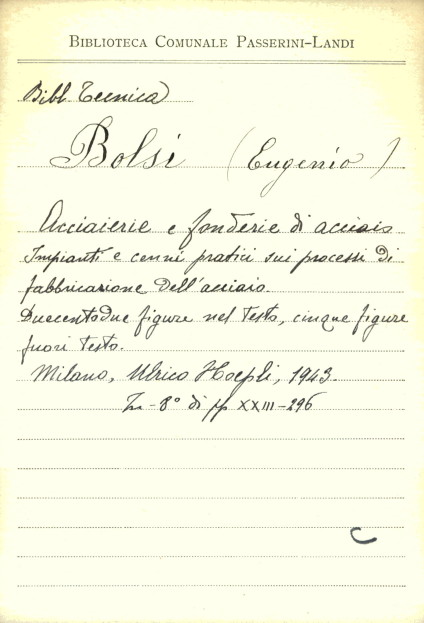 BIBLIOTECA COMUNALE PASSERINI-LANDI
Bibl. Tecnica
Bolsi (Eugenio)
Acciaierie e fonderie di acciaio
Impianti e cenni pratici sui processi di
fabbricazione dell'acciaio.
Duecentodue figure nel testo, cinque figure
fuori testo.
Milano, Ulrico Hoepli, 1943.
In-8° di pp XXIII-296
C